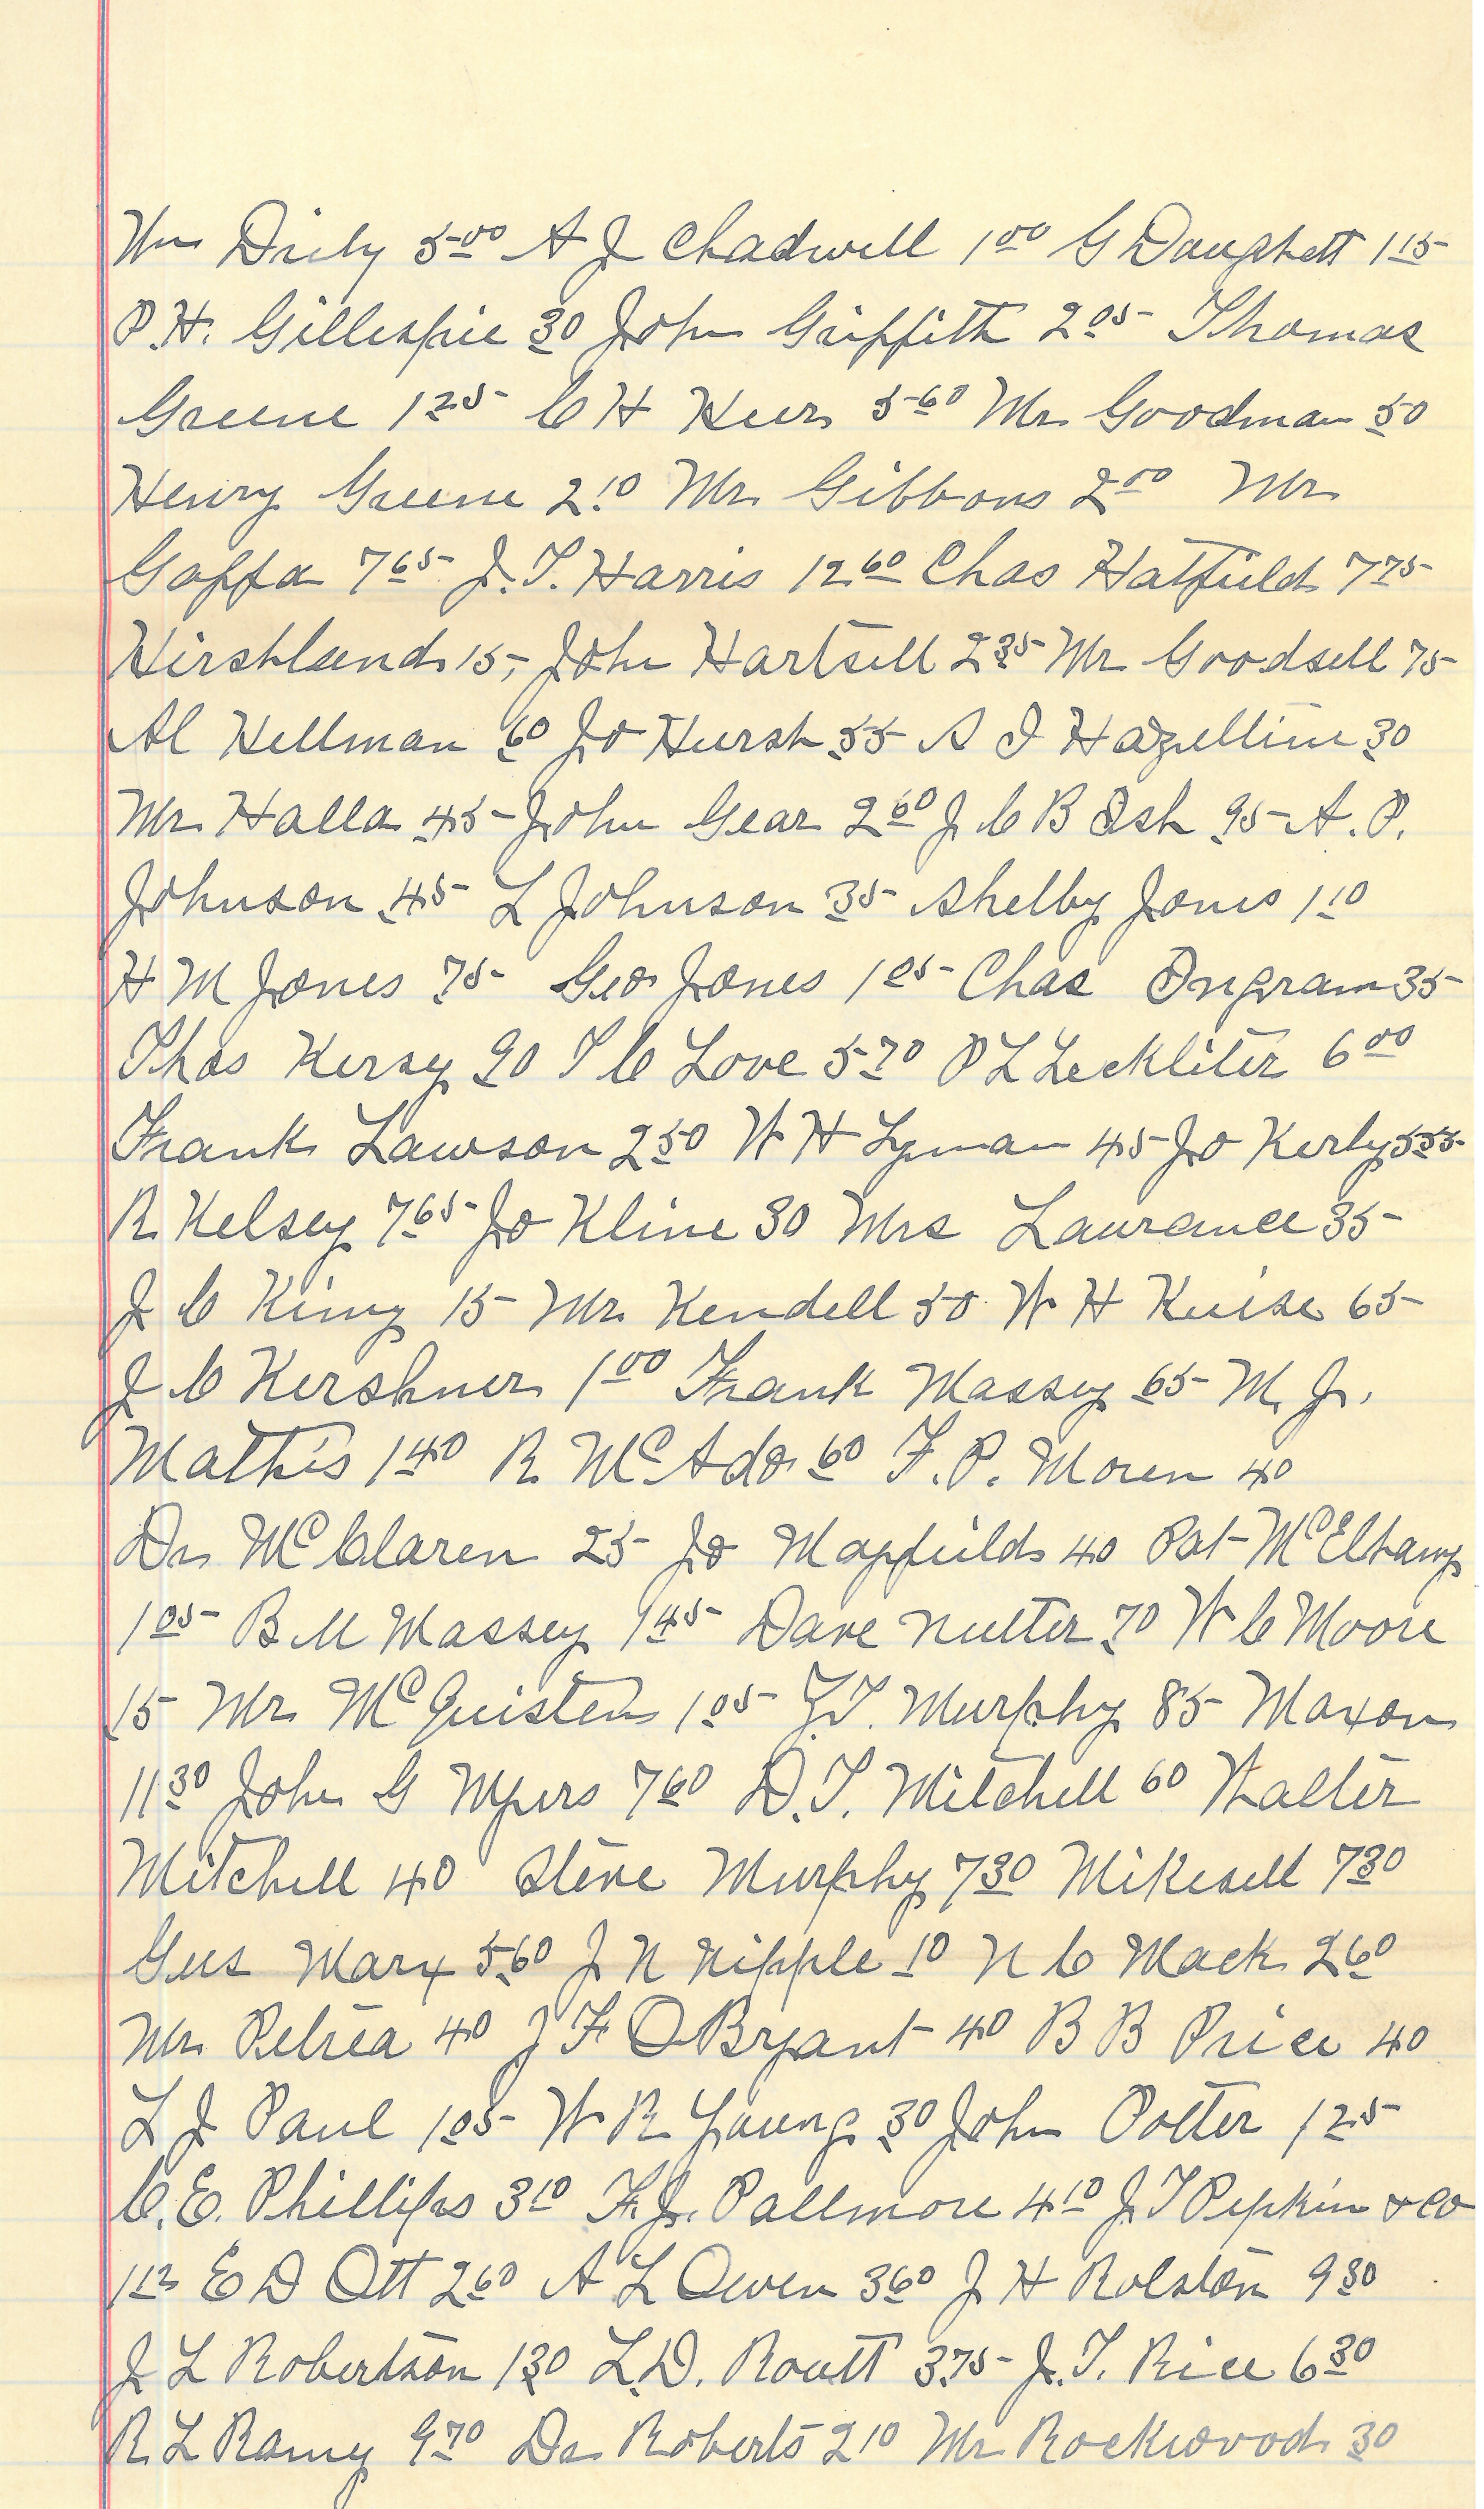 Wm Dirly 5 00 A J Chadwell 1 00 G Daughett 1 15
P. H. Gillespie 30 John Griffith 2 05 Thomas
Greene 1 25 C H Heer 5 60 Mr Goodman 50
Henry Greene 2 10 Mr Gibbons 2 00 Mr
Goffa 7 65 J. T. Harris 12 60 Chas Hatfield 7 75
Hirshland 15, John Hartsell 2 35 Mr Goodsell 75
Al Hellman 60 Jo Hursh 55 A I Hazelline 30
Mr Halla 45 John Gear 2 60 J C B Ish 95 A. P.
Johnson 45 L Johnson 35 Shelby Jones 1 10
H M Jones 75 Geo Jones 1 05 Chas Ingram 35
Thos Kersey 90 T C Love 5 70 P L Leckliter 6 00
Frank Lawson 2 50 W H Lyman 45 Jo Kerby 5 55
R Kelsey 7 65 Jo Kline 30 Mrs Laurance 35
J C King 15 Mr Kendell 50 W H Kuise 65
J C Kershner 1 00 Frank Massey 65 M. J.
Mathis 1 40 R McAdo 60 F. P. Moren 40
Dr McClaren 25 Jo Mayfield 40 Pat McElhany
1 05 B M Massey 1 45 Dave Nutter 70 W C Moore
15 Mr McQuisten 1 05 Y. T. Murphy 85 Maxon
11 30 John G Myers 7 60 D. T. Mitchell 60 Walter
Mitchell 40 Steve Murphy 7 30 Mikesell 7 30
Gus Marx 5 60 J N Nipple 10 N C Mack 2 60
Mr Petrea 40 J F O Bryant 40 B B Price 40
L J Paul 1 05 W R Young 30 John Potter 1 25
C. E. Phillips 3 10 F. J. Pallmore 4 10 J T Pipkin & Co
1 12 E D Ott 2 60 A L Owen 3 60 J H Rolston 9 30
J L Robertson 1 30 L. D. Routt 3.75 J. T. Rice 6 30
R L Ramey 9 70 Dr Roberts 2 10 Mr Rockwood 30